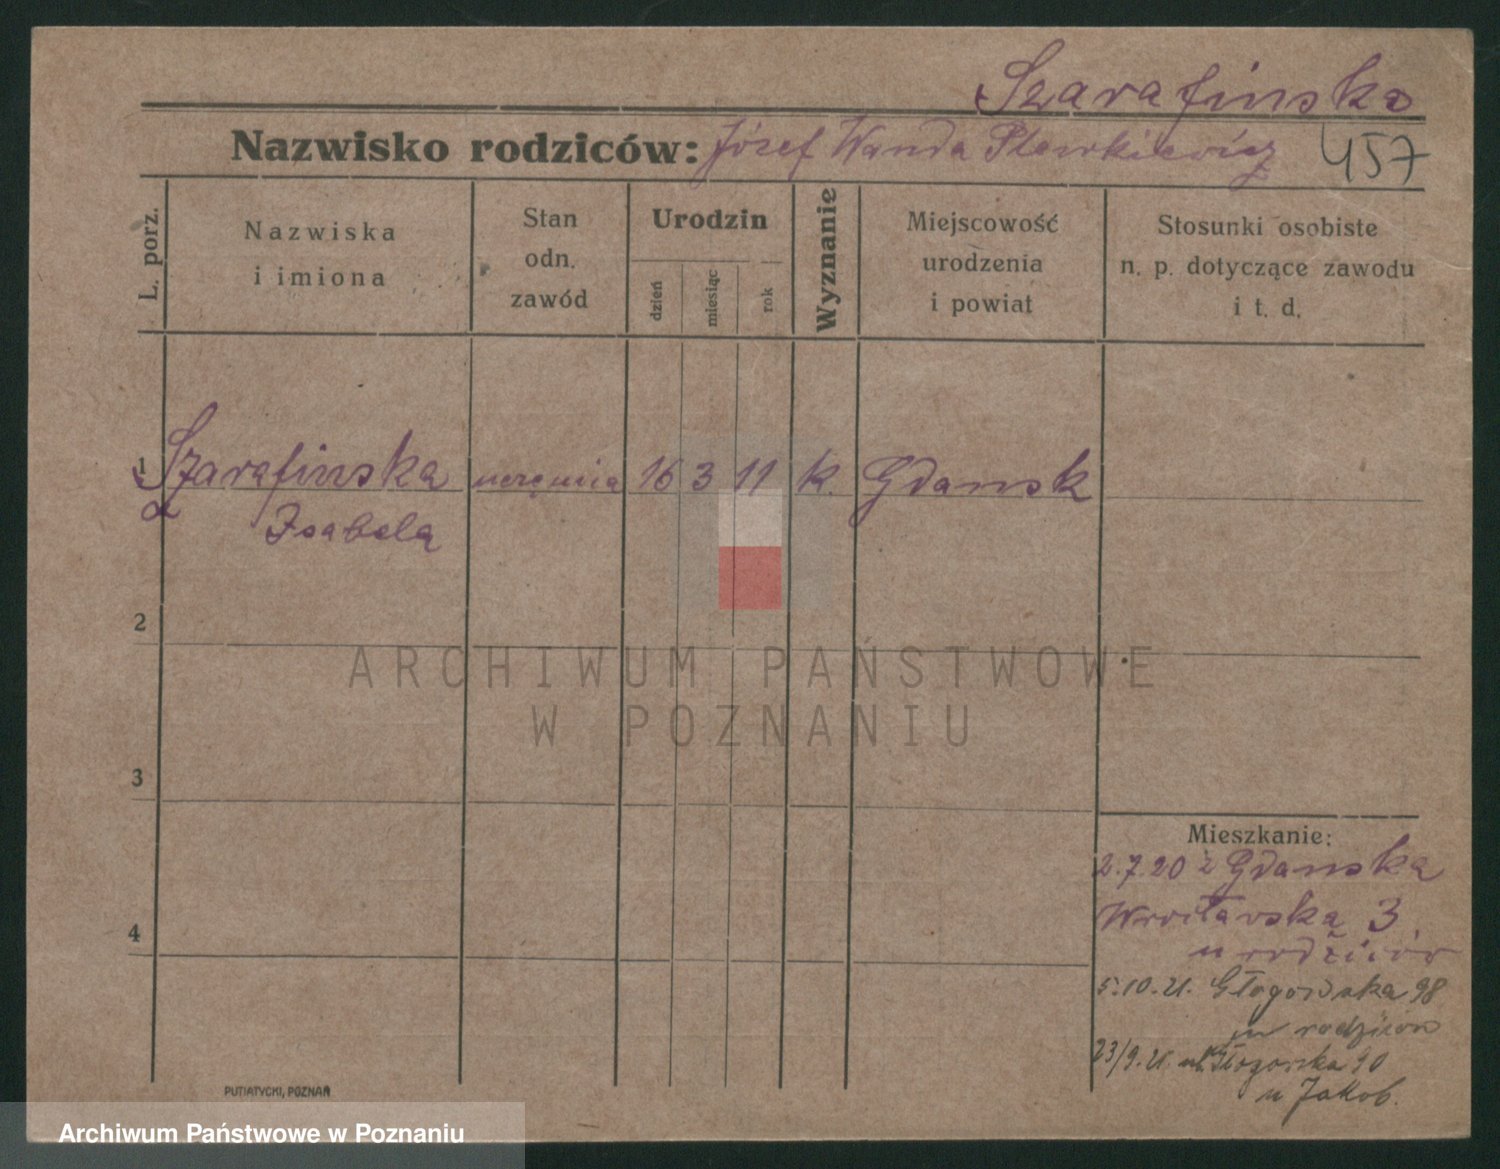 Szarafinska
Nazwisko rodziców: Józef Wanda Plewkiewicz 457
L. porz.
Nazwiska
i imiona
Stan
odn.
zawód
Urodzin
dzień
miesiąc
rok
Wyznanie
Miejscowość
urodzenia
i powiat
Stosunki osobiste
n. p. dotyczące zawodu
i t. d.
1 Szarafinska uczęnica 16 3 11 k. Gdansk
Isabela
2
ARCHIWUM PAŃSTWOWE
W POZNANIU
3
4
Mieszkanie:
2.7.20 z Gdanska
Wrocławska 3
u rodziców
5.10.21. Głogowska 98
u rodziców
23/9.21. ul. Głogowska 90
u Jakob.
PUTIATYCKI, POZNAŃ
Archiwum Państwowe w Poznaniu